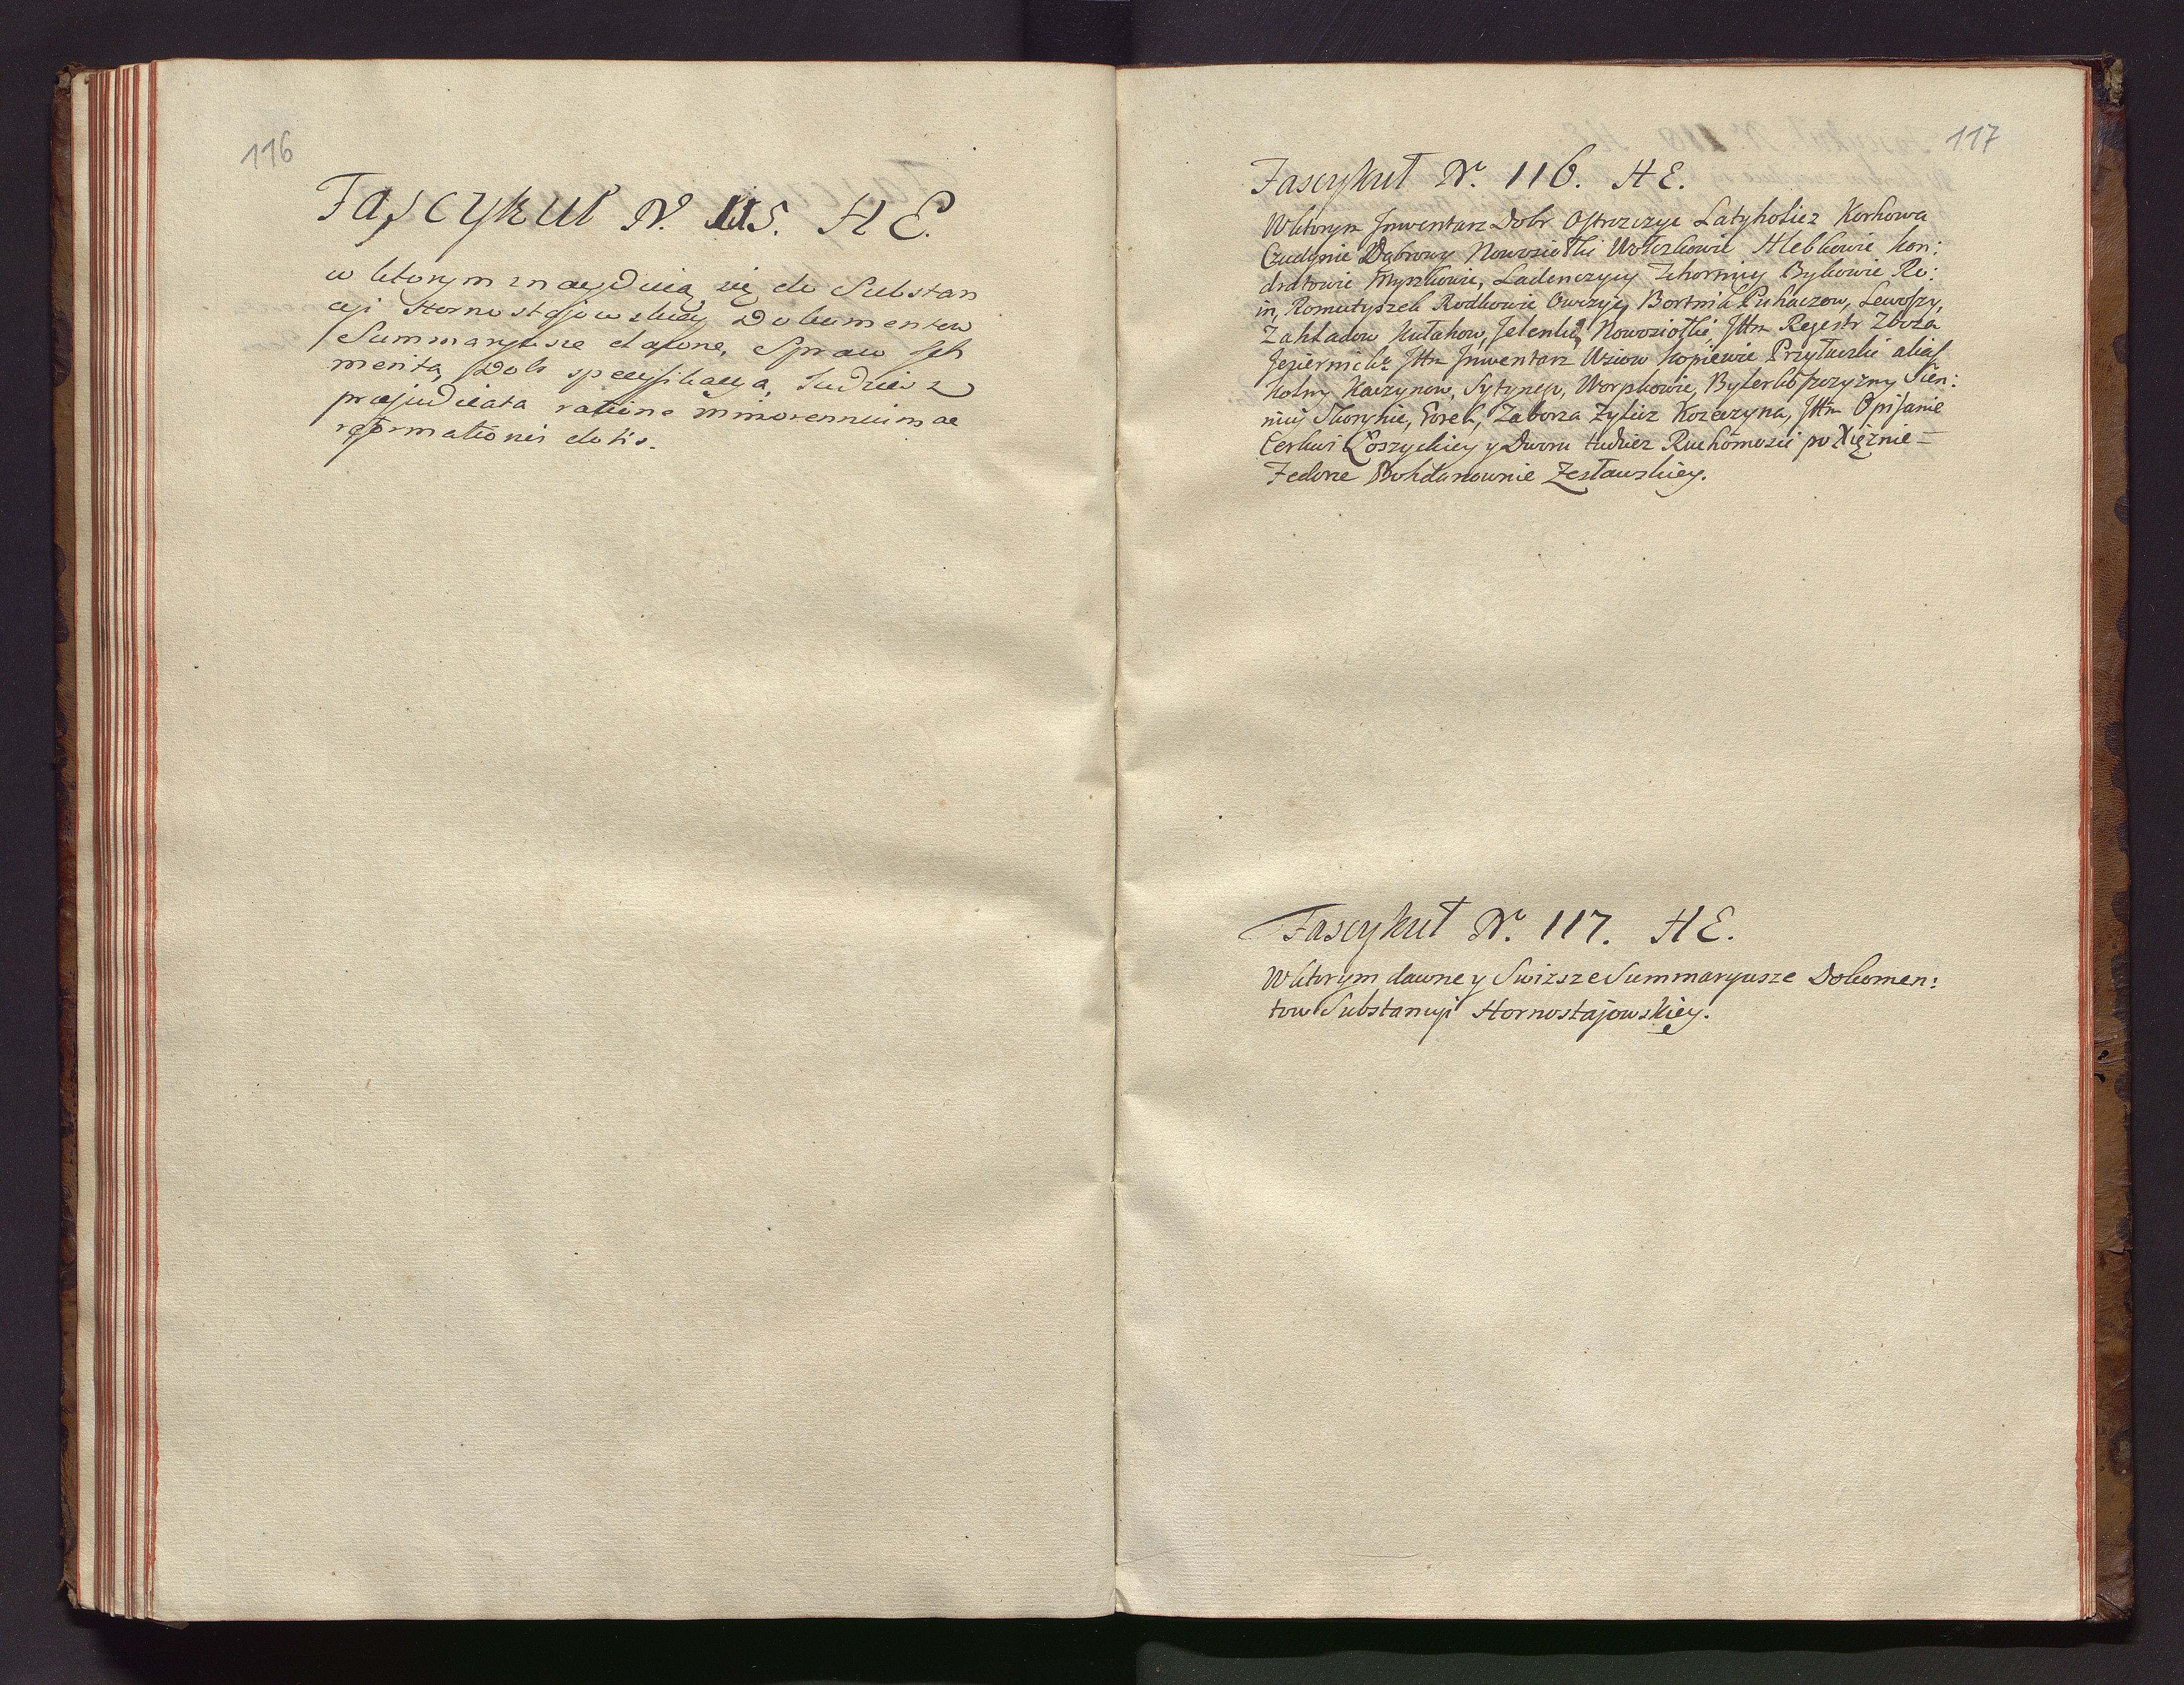 116
Fascykuł N. 115. HE.
w ktorym znayduią się do Substan
cyi Hornostajowskiey Dokumentow
Summaryusze dawne, Spraw
menta, Dob specyfikacya, tudziesz
præjudicata ratione minorennium ac
reformationis dotis.
117
Fascykuł Nr. 116. HE.
W ktorym Jnwentarz Dobr Ostrzczyc Latyholicz Korkowa
Czudynie Dąbrowy Nowosiołki Wołczkowie Hlebkowie kon:
dratowie Myszkowie, Ladenczycy Zchornicy Bykowie Ro:
in, Romutyszek Rodkowie Owczyc, Bortnik Puhaczow, Lewoszy,
Zakładow Kułakow, Jelenki, Nowosiołki, Jttm Regestr Zboza
Jeziernickę Jttm Jnwentarz Wsiow Kopiewie Przyłuczki alias
Kolny Kaczynow, Sytynego, Worpkowie, Byterko Szczyzny Sien:
nicy Skorykie, Forek, Zaborza Zylicz Kozeczyna, Jttm Opisanie
Cerkwi Łoszyckiey y Dworu tudziez Ruchomosci po Xiężnie
Fedorze Bohdanownie Zesławskiey.
Fascykuł Nr. 117. HE.
W ktorym dawne y Swiższe Summaryusze Dokumen:
tow Substancyi Hornostajowskiey.